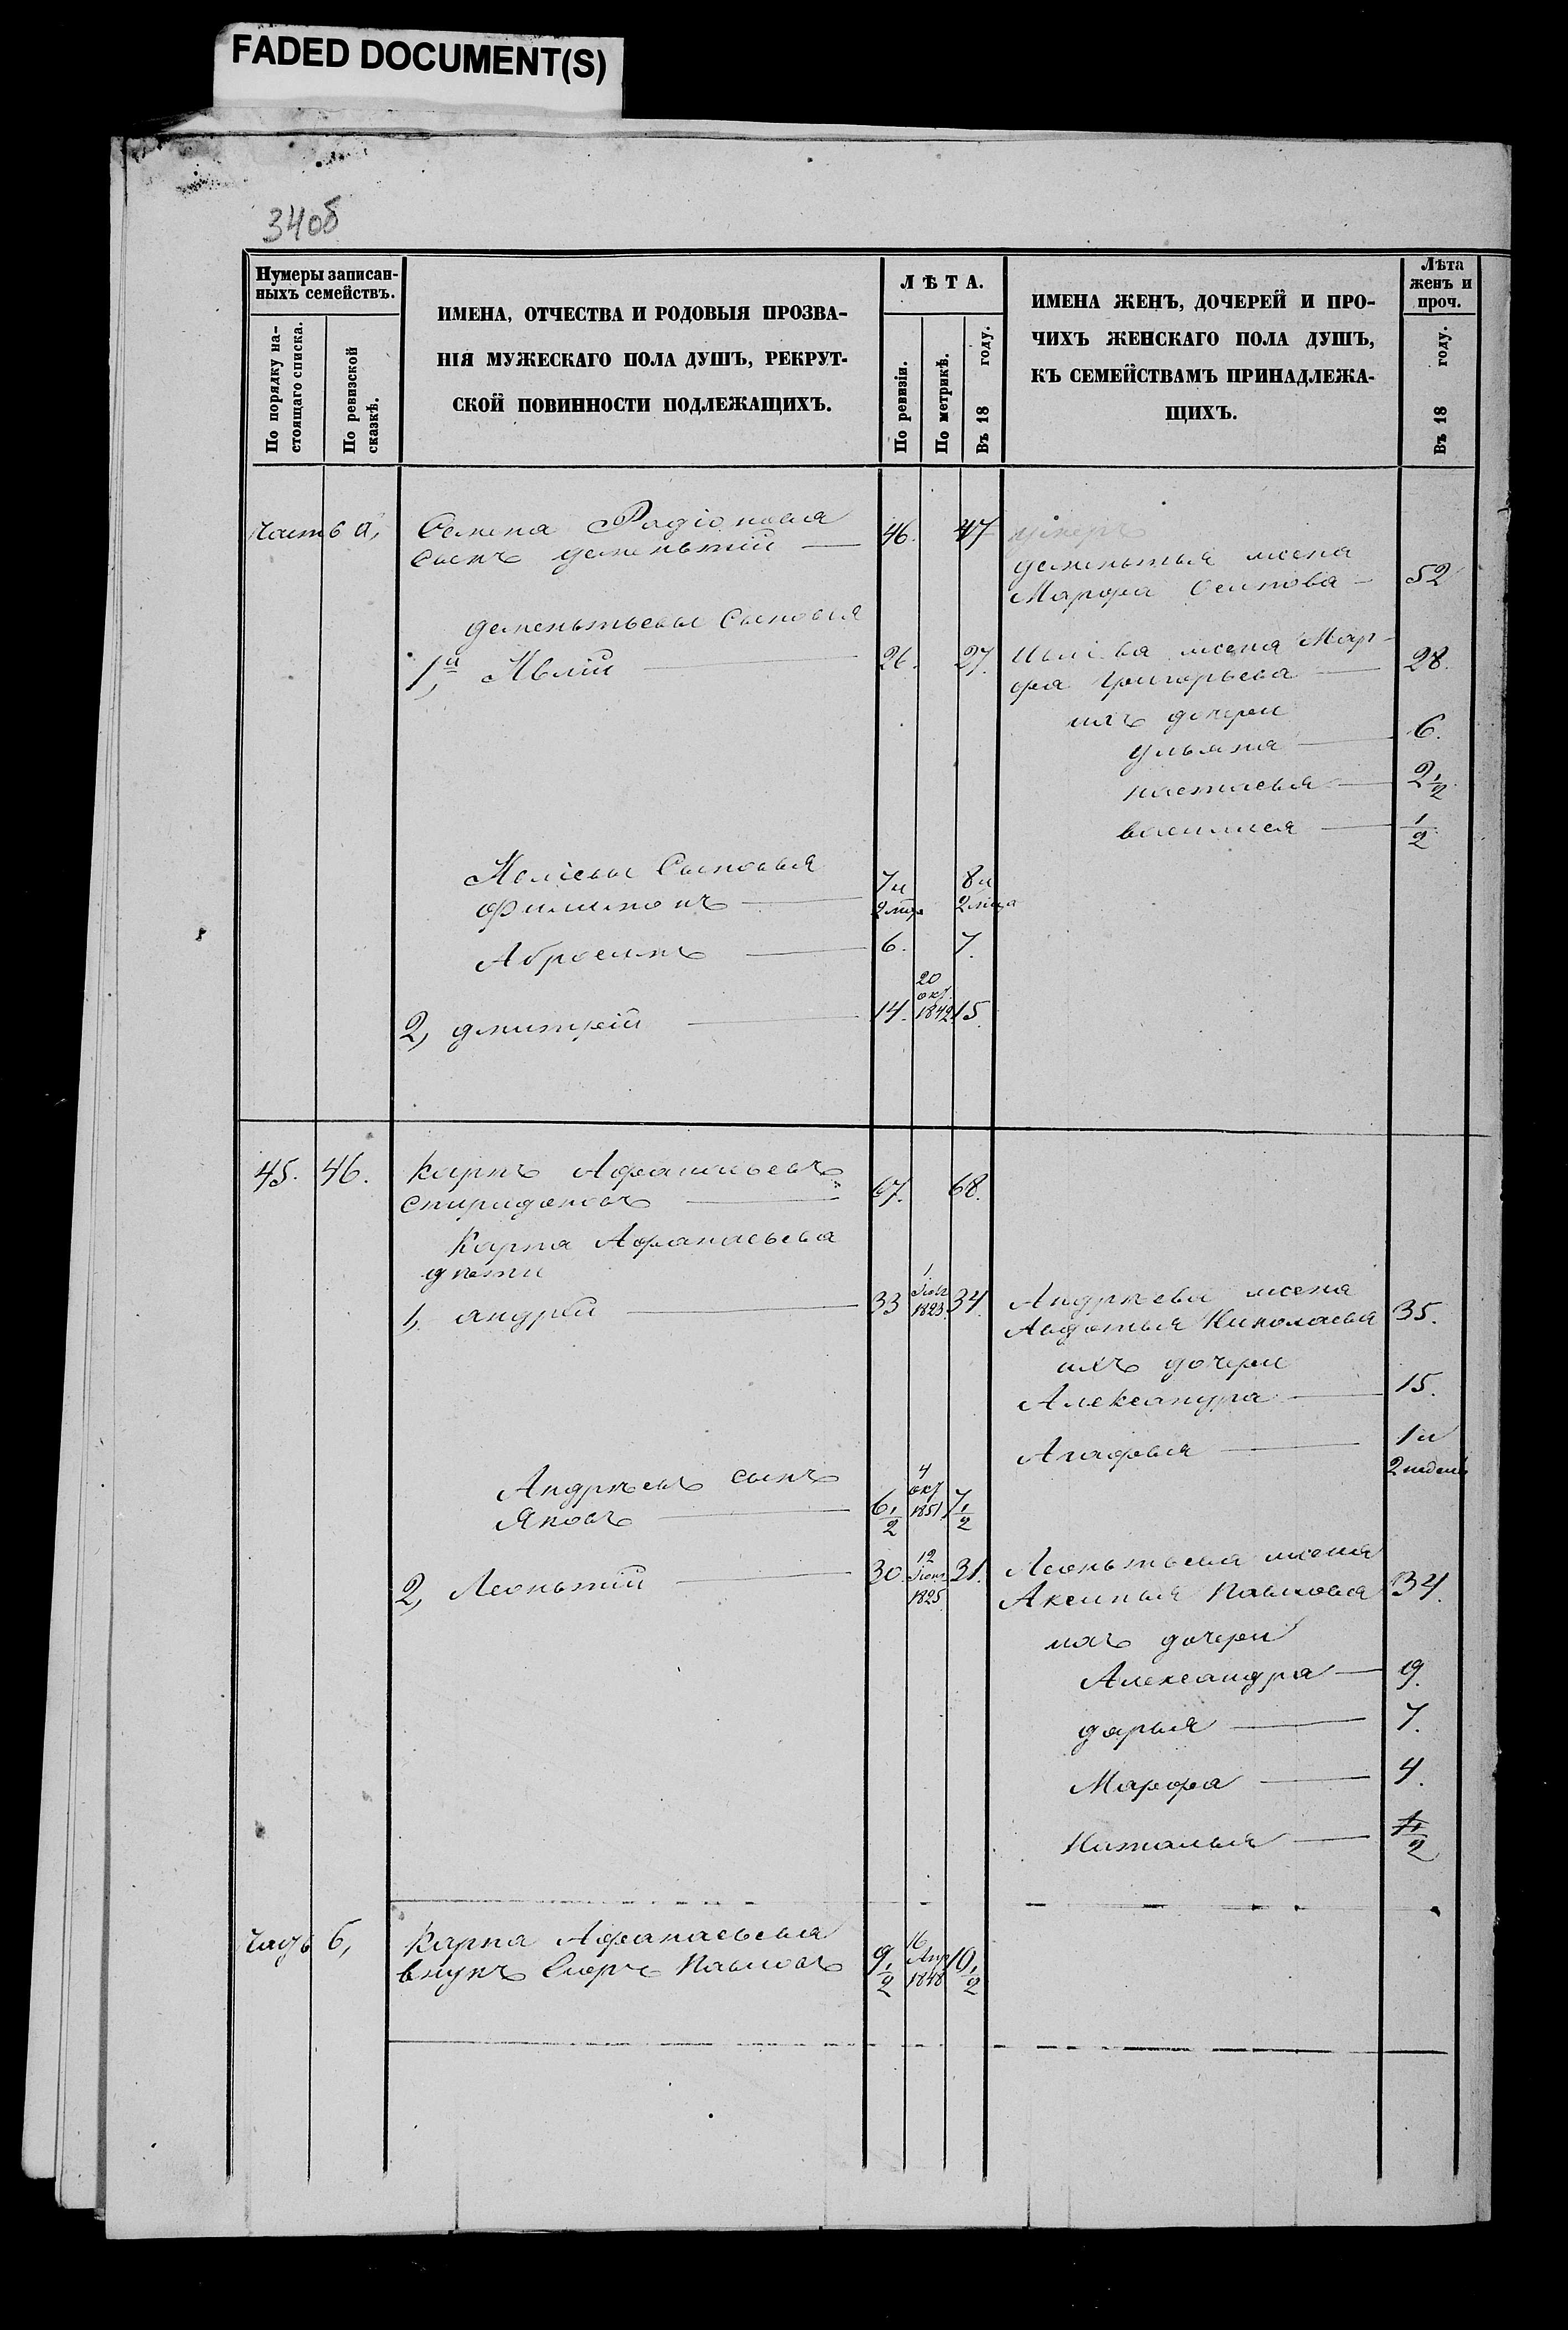 FADED DOCUMENT(S)
34об
Нумеры записан-
ныхъ семействъ.
По порядку на-
стоящаго списка.
По ревизской
сказкѣ.
ИМЕНА, ОТЧЕСТВА И РОДОВЫЯ ПРОЗВА-
НІЯ МУЖЕСКАГО ПОЛА ДУШЪ, РЕКРУТ-
СКОЙ ПОВИННОСТИ ПОДЛЕЖАЩИХЪ.
ЛѢТА.
По ревизіи.
По метрикѣ.
Въ 18 году.
ИМЕНА ЖЕНЪ, ДОЧЕРЕЙ И ПРО-
ЧИХЪ ЖЕНСКАГО ПОЛА ДУШЪ,
КЪ СЕМЕЙСТВАМЪ ПРИНАДЛЕЖА-
ЩИХЪ.
Лѣта
женъ и
проч.
Въ 18 году.
часть а,
Семена Радіонова
сынъ дементий — 46. 47
дементья жена
Марфа Осипова — 52
дементьевы Сыновья
1й, Иовлий — 26. 27.
жена Мар-
фа Григорьева — 28.
ихъ дочери
ульяна — 6.
настасья — 2 1/2
василиса — 1/2
Сыновья
Филимонъ — 7 и 2 мца 8 и 2 мца
Абросимъ — 6. 7.
2, дмитрей — 14. 20 окт. 1842 15.
45. 46.
Карпъ Афанасьевъ
спиридоновъ — 67. 68.
Карпа Афанасьева
дѣти
1, андрей — 33 1 1823. 34.
Андрѣева жена
Авдотья Николаева 35.
ихъ дочери
Александра — 15.
Агафья — 1 и 2 недели
Андрѣевъ сынъ
Яковъ — 6 1/2 4 окт 1851 7 1/2
2, Леонтий — 30. 12 1825 31.
Леонтьева жена
Аксинья Павлова 34.
ихъ дочери
Александра — 9.
дарья — 7.
Марфа — 4.
Наталья — 1/2
часть б,
Карпа Афанасьева
внукъ Егоръ Павловъ 9 1/2 16 Апр 1848 10 1/2